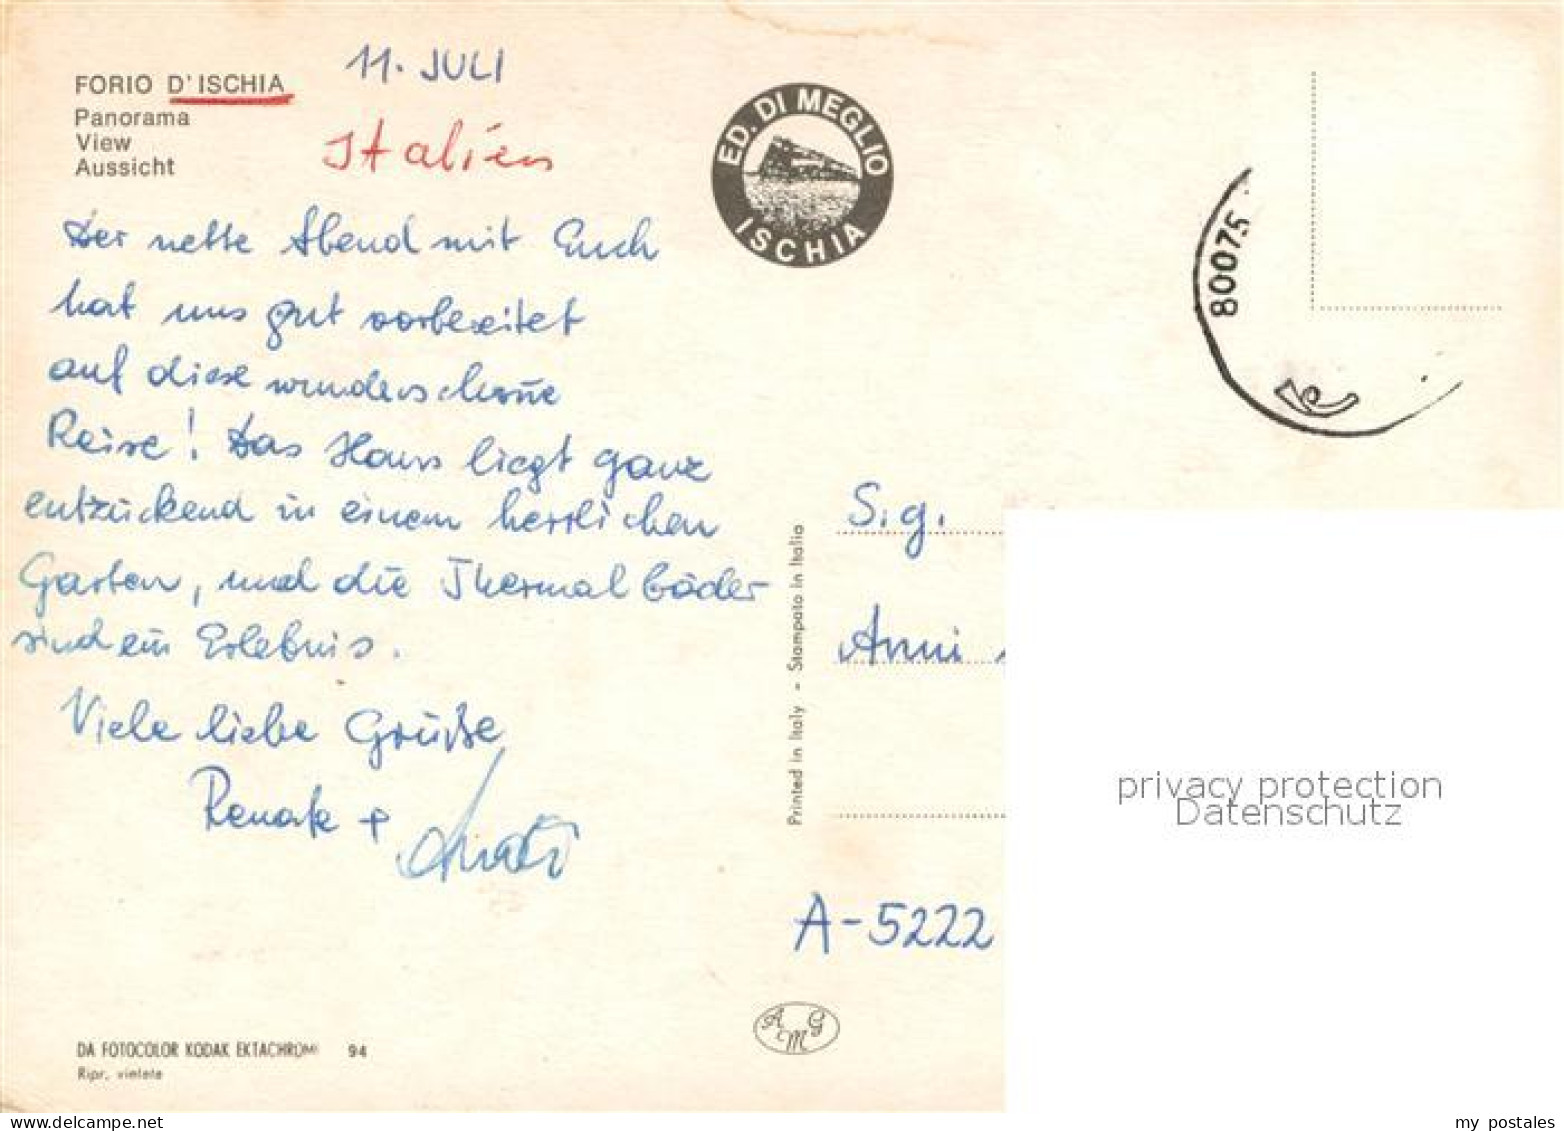 FORIO D'ISCHIA
Panorama
View
Aussicht
11. JULI
Italien
Der nette Abend mit Euch
hat uns gut vorbereitet
auf diese wunderschöne
Reise! Das Haus liegt ganz
entzückend in einem herrlichen
Garten, und die Thermalbäder
sind ein Erlebnis.
Viele liebe Grüße
Renate +
DA FOTOCOLOR KODAK EKTACHROME 94
Ripr. vietata
ED. DI MEGLIO
ISCHIA
Printed in Italy - Stampato in Italia
80075
S.g.
Anni
A-5222
AMG
privacy protection
Datenschutz
my postales